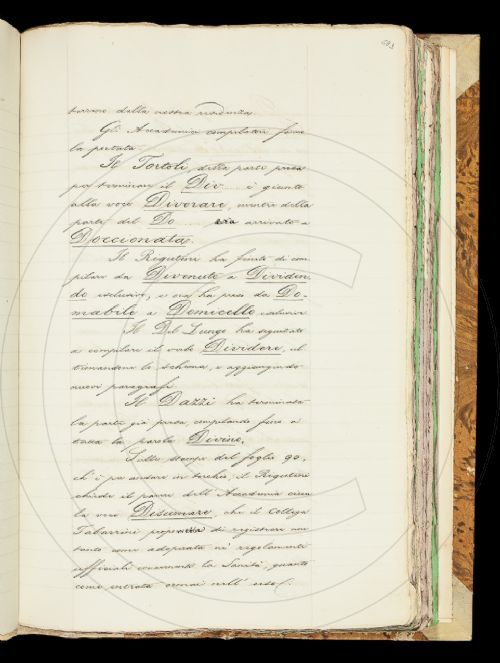 della nostra residenza.
Gli Accademici compilatori fanno
la portata.
Il Tortoli, della parte presa
per terminare il Div.... è giunto
alla voce Divorare, mentre della
parte del Do.... era arrivato a
Doccionata.
Il Rigutini ha finito di com-
pilare da Divenuto a Dividen-
do esclusive, e ora ha preso da Do-
mabile a Domicello
Il Del Lungo ha seguitato
a compilare il verbo Dividere,
lo schema, e aggiungendo
nuovi paragrafi.
Il Dazzi ha terminata
la parte già presa, compilando fino a
tutta la parola Divino.
Sulle stampe del foglio 90,
ch'è per andare in torchio, il Rigutini
chiede il parere dell'Accademia circa
la voce Desumare, che il Collega
Tabarrini di registrare
tanto come adoperata ne' regolamenti
ufficiali concernenti la Sanità, quanto
come entrata ormai nell'uso.